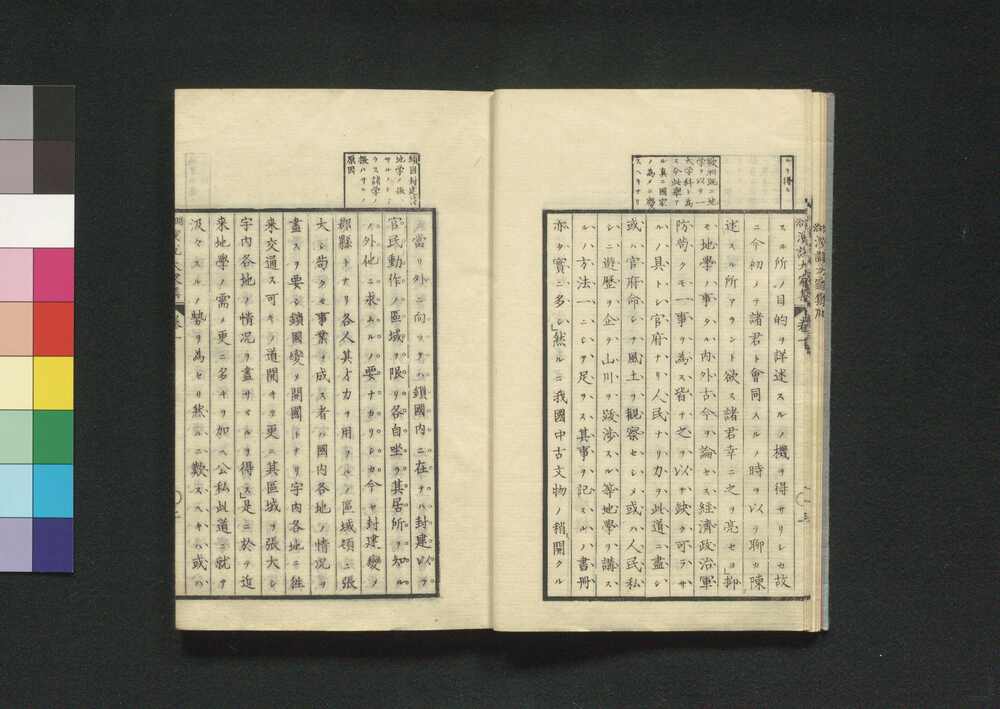 スル所ノ目的ヲ詳述スルノ機ヲ得サリシモ故
ニ今初メテ諸君ト會同スルノ時ヲ以テ聊カ陳
述スル所アラント欲ス諸君幸ニ之ヲ亮セヨ」抑
モ地學ノ事タル内外古今ヲ論セス經濟政治軍
防苟クモ一事ヲ為ス皆ナ之ヲ以テ缺ク可ラサ
ルノ具トシ官府ナリ人民ナリ力ヲ此道ニ盡シ
或ハ官府命シテ風土ヲ觀察セシメ或ハ人民私
シニ遊歴ヲ企テ山川ヲ跋渉スル等地學ヲ講ス
ルノ方法一ニシテ足ラス其事ヲ記スルノ書冊
亦タ實ニ多シ」然ルニ我國中古文物ノ稍開クル
ルヲ得ル
歐州既ニ地
學ヲ以テ一
大学科ト為
ス今此學ア
ル真ニ國家
ノ為メニ慶
スヘキナリ
ニ當リ外ニ向ツテハ鎖國内ニ在テハ封建以テ
官民動作ノ區域ヲ限リ各自坐ヲ其居所ヲ知ル
ノ外他ニ求ムルノ要ナカリシカ今ヤ封建變メ
郡縣トナリ各人其才力ヲ用フルノ區域頓ニ張
大シ苟クモ事業ヲ成ス者ハ國内各地ノ情况ヲ
盡スヲ要シ鎖國變メ開國トナリ宇内各地ニ徃
来交通ス可キノ道開キテ更ニ其區域ヲ張大シ
宇内各地ノ情况ヲ盡サヾルヲ得ス」是ニ於テ近
来地學ノ需メ更ニ多キヲ加ヘ公私此道ニ就テ
汲々スルノ勢ヲ為セリ然ルニ歎スヘキハ或ハ
鎖国封建ハ
地学ノ振ハ
サルノミナ
ラス諸学ノ
振ハサルノ
原因